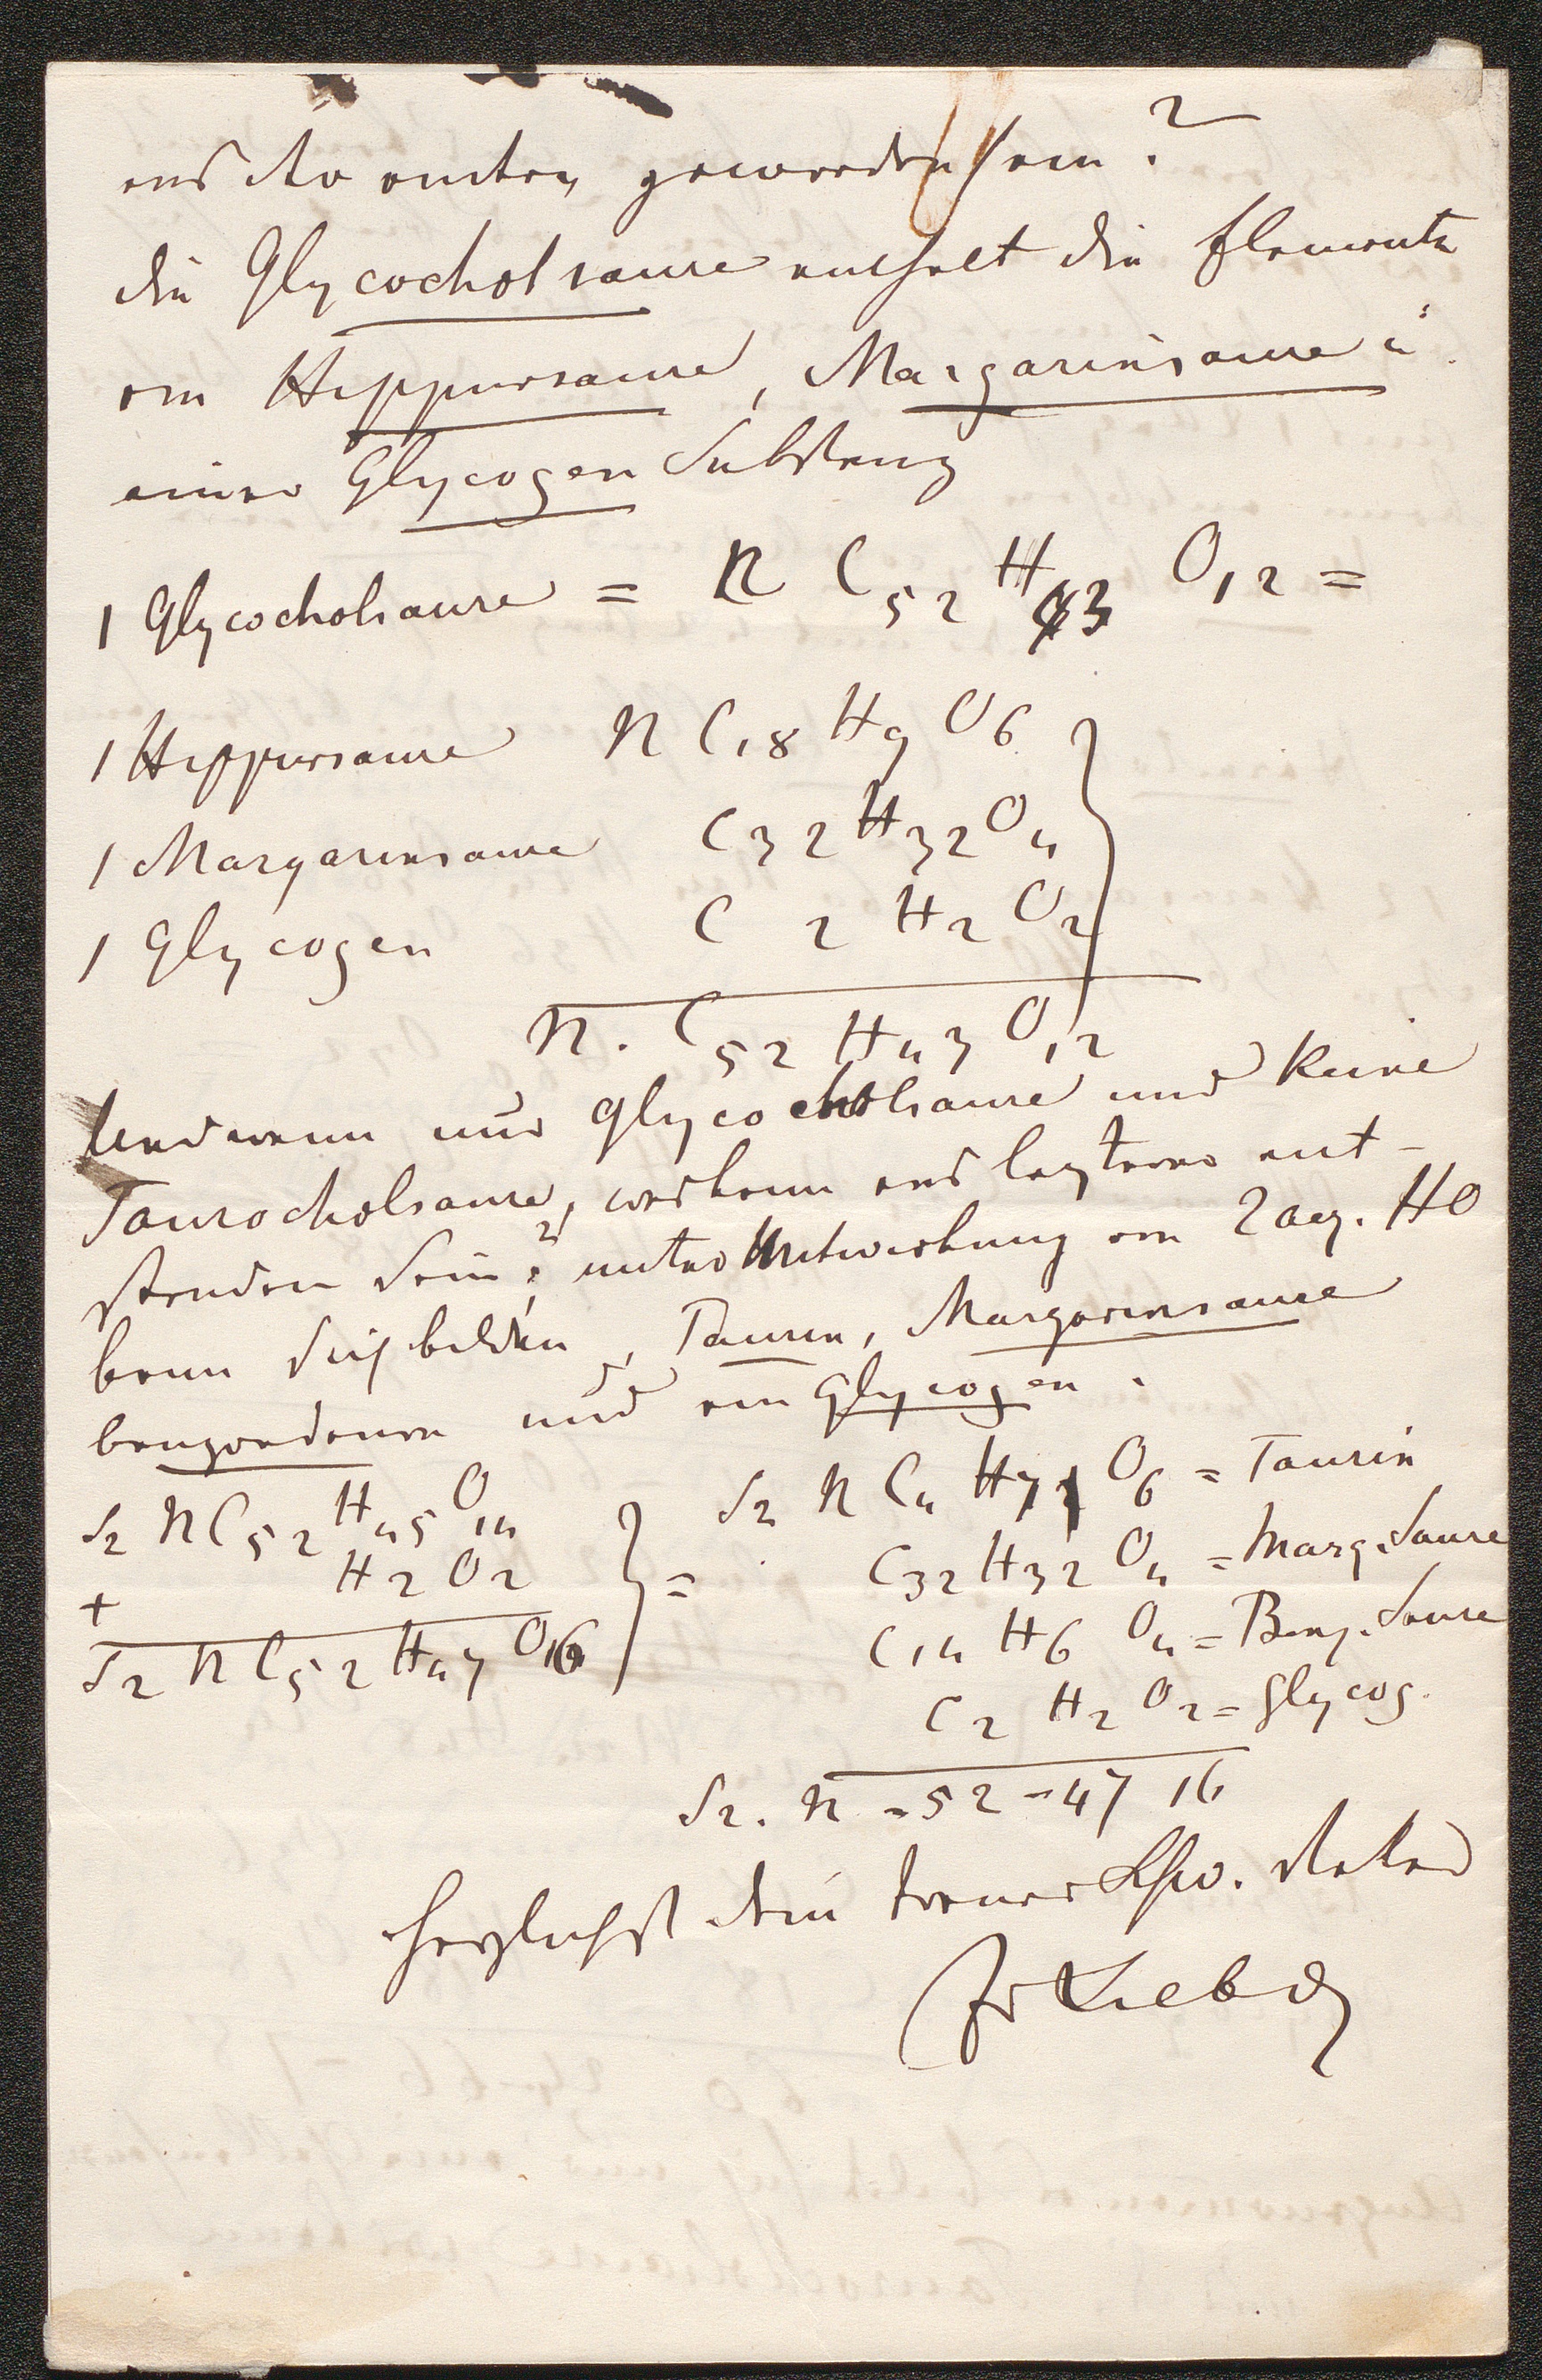 aus der andern geworden sein?
die Glycocholsaure enthält die Elemente
von Hippursaure, Margarinsaure u.
einer Glycogen Substanz
1 Glycocholsaure = N C52 H43 O12 =
1 Hippursaure N C18 H9 O6
1 Margarinsaure C32 H32 O4
1 Glycogen C2 H2 O2
N. C52 H43 O12
Und wenn nur Glycocholsaure und keine
Taurocholsaure, was kann aus letzterer ent-
standen sein? unter Mitwirkung von 2 aeq. HO
kann sich bilden, Taurin, Margarinsaure
und ein Glycogen.
S2 N C52 H45 O14
+ H2 O2
S2 N C52 H47 O16
} =
S2 N C4 H7 O6 = Taurin
C32 H32 O4 = Marg. Saure
C14 H6 O4 = Benz. Saure
C2 H2 O2 = Glycog.
S2. N - 52 - 47 16
herzlichst dein treuer
Liebig